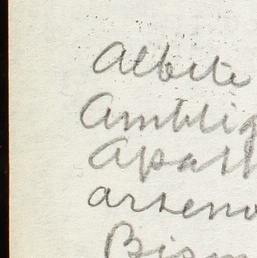 Albite
Amblig
Apat
arseno
Bism